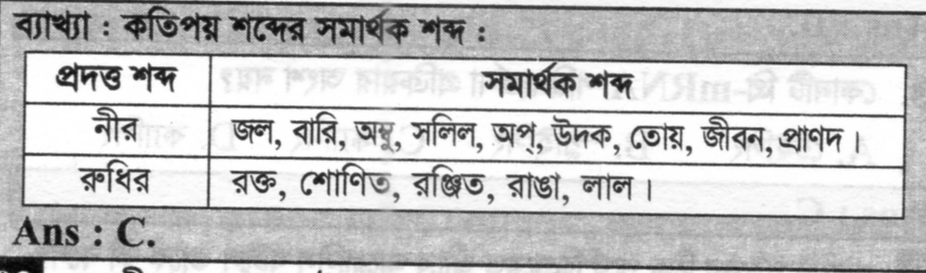 ব্যাখ্যা : কতিপয় শব্দের সমার্থক শব্দ :
প্রদত্ত শব্দ সমার্থক শব্দ
নীর জল, বারি, অম্বু, সলিল, অপ্, উদক, তোয়, জীবন, প্রাণদ।
রুধির রক্ত, শোণিত, রঞ্জিত, রাঙা, লাল।
Ans : C.